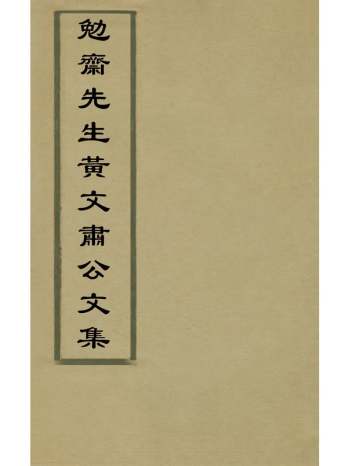 勉齋先生黃文肅公文集